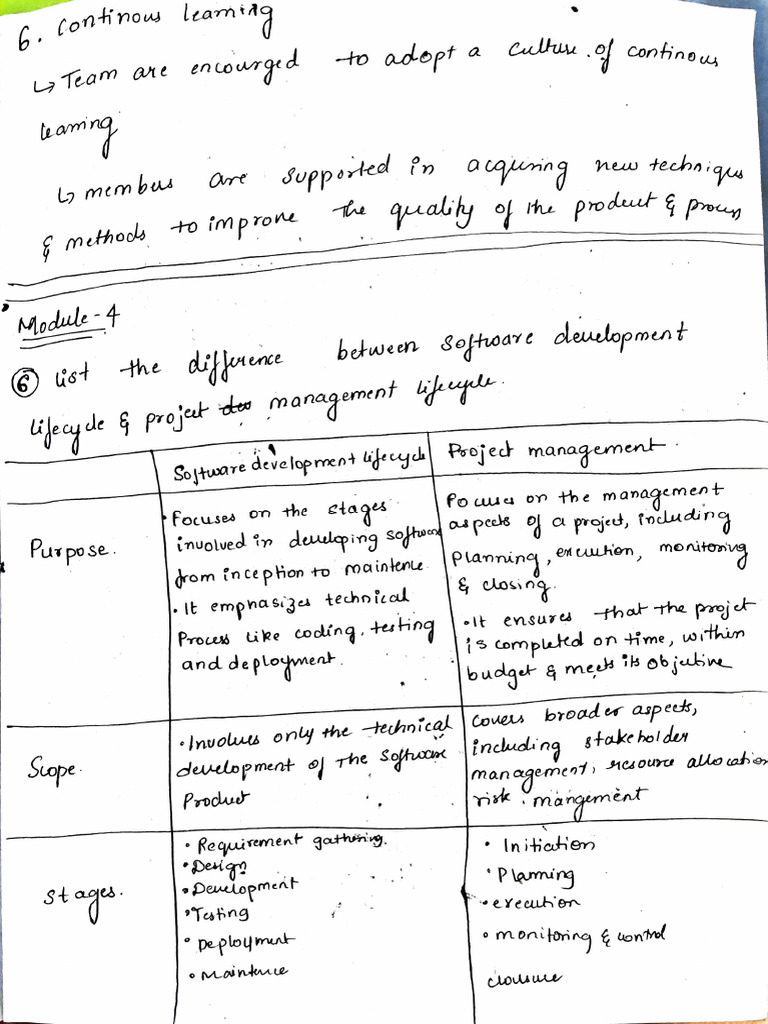 6. continous learning
↳ Team are encourged to adopt a culture of continous
learning
↳ members are supported in acquring new techniques
& methods to improve the quality of the product & process
Module-4
⑥ List the difference between software development
lifecycle & project management lifecycle.
Software development lifecycle
Project management.
Purpose.
• Focuses on the stages
involved in developing software
from inception to maintence.
• It emphasizes technical
Process like coding, testing
and deployment.
Focuses on the management
aspects of a project, including
planning, execution, monitoring
& closing.
• It ensures that the projet
is completed on time, within
budget & meets its objective
Scope.
• Involves only the technical
development of The Software
Product
covers broader aspects,
including stakeholder
management, resource allocation
risk. mangement
Stages.
• Requirement gathering.
• Design
• Development
• Testing
• Deployment
• Maintence
• Initiation
• Planning
• execution
• monitoring & control
closure